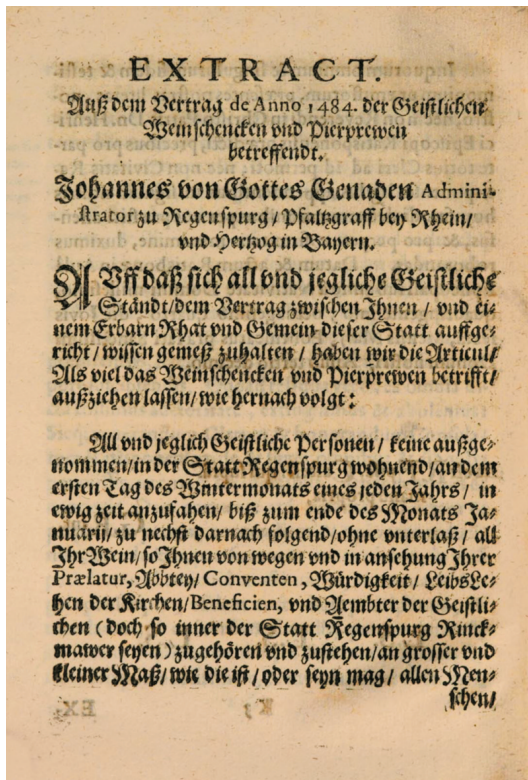 EXTRACT.
Auß dem Vertrag de Anno 1484. der Geistlichen
Weinschencken vnd Pierprewen
betreffendt.
Johannes von Gottes Genaden Admini-
strator zu Regenspurg / Pfaltzgraff bey Rhein /
vnd Hertzog in Bayern.
AVff daß sich all vnd jegliche Geistliche
Ständt / dem Vertrag zwischen Ihnen / vnd ei-
nem Erbarn Rhat vnd Gemein dieser Statt auffge-
richt / wissen gemeß zuhalten / haben wir die Articul /
Als viel das Weinschencken vnd Pierprewen betrifft /
außziehen lassen / wie hernach volgt:
All vnd jeglich Geistliche Personen / keine außge-
nommen / in der Statt Regenspurg wohnend / an dem
ersten Tag des Wintermonats eines jeden Jahrs / in
ewig zeit anzufahen / biß zum ende des Monats Ja-
nuarij / zu nechst darnach folgend / ohne vnterlaß / all
Ihr Wein / so Ihnen von wegen vnd in ansehung Ihrer
Prælatur, Abbtey / Conventen, Würdigkeit / LeibsLe-
hen der Kirchen / Beneficien, vnd Aembter der Geistli-
chen (doch so inner der Statt Regenspurg Rinck-
mawer seyen) zugehören vnd zustehen / an grosser vnd
kleiner Maß / wie die ist / oder seyn mag / allen Men-
schen /